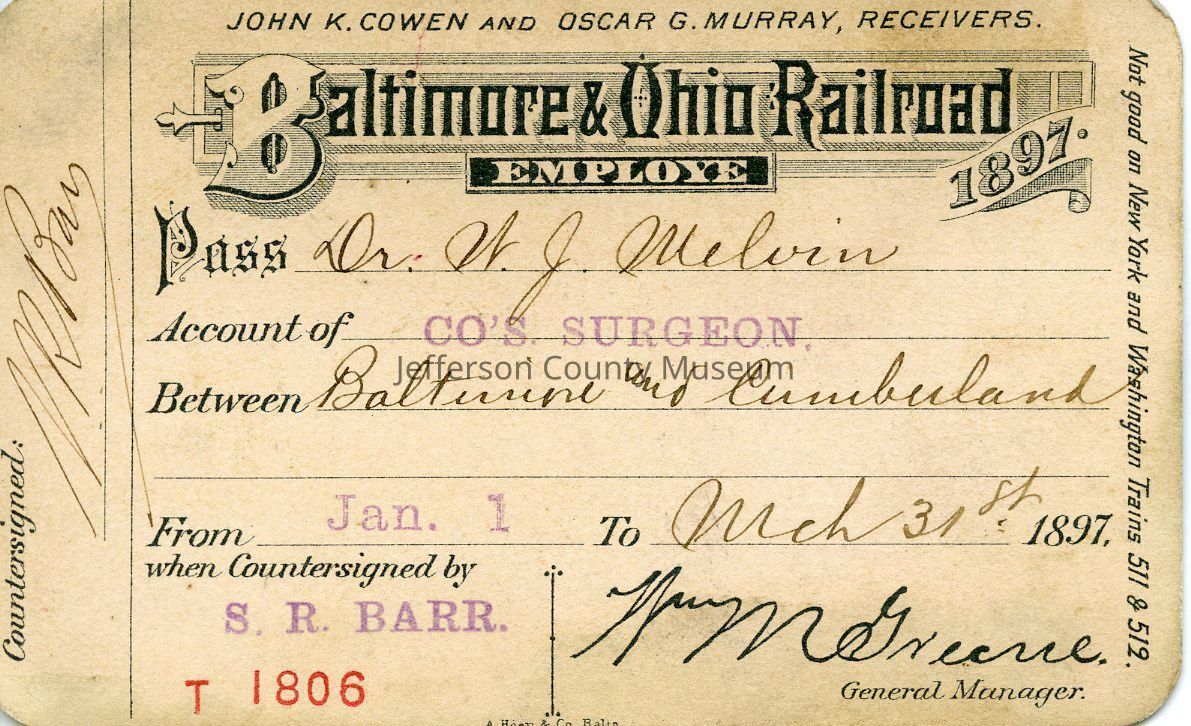 JOHN K. COWEN AND OSCAR G. MURRAY, RECEIVERS.
Baltimore & Ohio Railroad
EMPLOYE
1897.
Pass Dr. W. J. Melvin
Account of CO'S. SURGEON.
Jefferson County Museum
Between Baltimore and Cumberland
From Jan. 1 To Mch 31st. 1897.
when Countersigned by
S. R. BARR.
Wm M Greene.
General Manager.
T 1806
Countersigned:
Not good on New York and Washington Trains 511 & 512.
& Co. Balto.